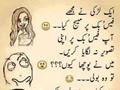 ایک لڑکی نے مجھے
فیس بک پر میسج کیا۔۔
آپ فیس بک پر اپنی
تصویر نہ لگایا کریں۔
میں نے پوچھا کیوں؟؟؟
تو وہ بولی۔۔۔